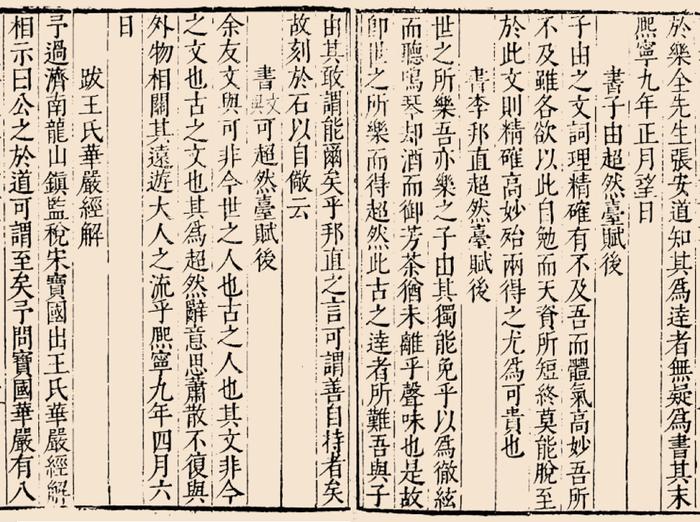 於樂全先生張安道知其為達者無疑為書其末
熙寧九年正月望日
書子由超然臺賦後
子由之文詞理精確有不及吾而體氣高妙吾所
不及雖各欲以此自勉而天資所短終莫能脫至
於此文則精確高妙殆兩得之尤為可貴也
書李邦直超然臺賦後
世之所樂吾亦樂之子由其獨能免乎以為徹絃
而聽鳴琴却酒而御芳茶猶未離乎聲味也是故
即世之所樂而得超然此古之達者所難吾與子
由其敢謂能爾矣乎邦直之言可謂善自持者矣
故刻於石以自儆云
書文與可超然臺賦後
余友文與可非今世之人也古之人也其文非今
之文也古之文也其為超然辭意思蕭散不復與
外物相關其遠遊大人之流乎熙寧九年四月六
日
跋王氏華嚴經解
予過濟南龍山鎮監稅宋寶國出王氏華嚴經解
相示曰公之於道可謂至矣予問寶國華嚴有八